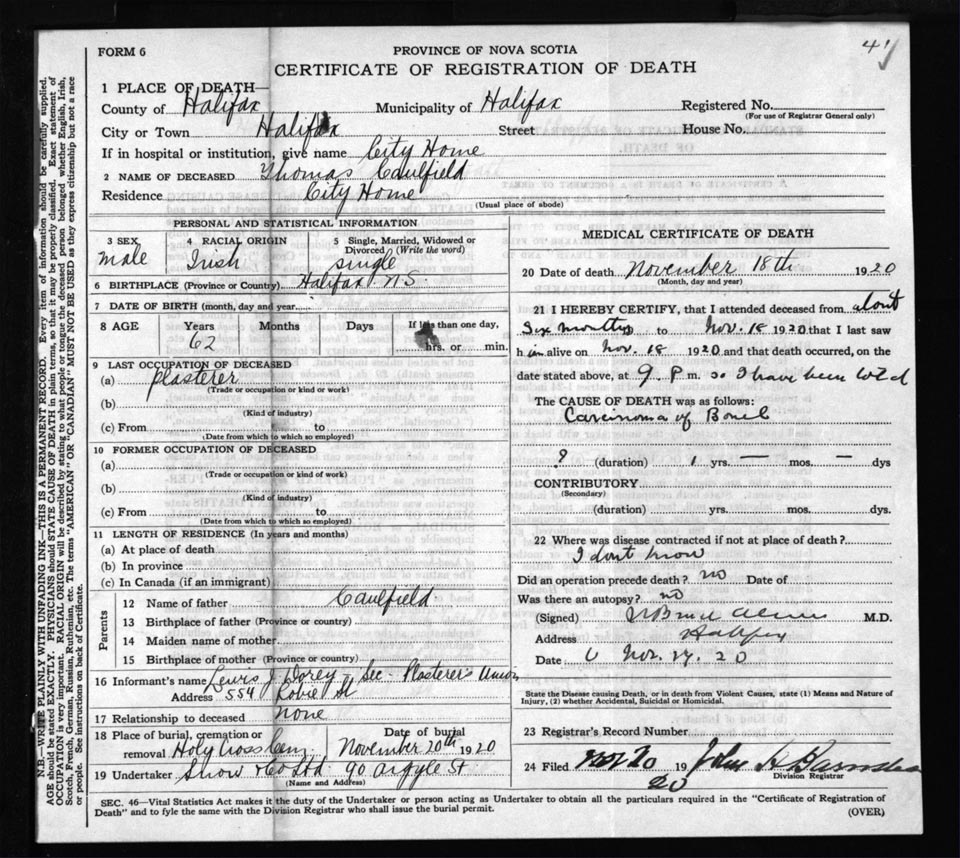 FORM 6
PROVINCE OF NOVA SCOTIA
CERTIFICATE OF REGISTRATION OF DEATH
1 PLACE OF DEATH—
County of Halifax Municipality of Halifax Registered No.
(For use of Registrar General only)
City or Town Halifax Street House No.
If in hospital or institution, give name City Home
2 NAME OF DECEASED Thomas Caulfield
Residence City Home
(Usual place of abode)
PERSONAL AND STATISTICAL INFORMATION
3 SEX 4 RACIAL ORIGIN 5 Single, Married, Widowed or Divorced (Write the word)
male Irish single
6 BIRTHPLACE (Province or Country) Halifax N.S.
7 DATE OF BIRTH (month, day and year)
8 AGE Years Months Days If less than one day,
62 hrs. or min.
9 LAST OCCUPATION OF DECEASED
(a) Plasterer
(Trade or occupation or kind of work)
(b)
(Kind of industry)
(c) From to
(Date from which to which so employed)
10 FORMER OCCUPATION OF DECEASED
(a)
(Trade or occupation or kind of work)
(b)
(Kind of industry)
(c) From to
(Date from which to which so employed)
11 LENGTH OF RESIDENCE (In years and months)
(a) At place of death
(b) In province
(c) In Canada (if an immigrant)
Parents
12 Name of father Caulfield
13 Birthplace of father (Province or country)
14 Maiden name of mother
15 Birthplace of mother (Province or country)
16 Informant's name Lewis J. Dorey Sec - Plasterer's Union
Address 554 Robie St
17 Relationship to deceased none
18 Place of burial, cremation or removal Holy Cross Cem. Date of burial November 20th 1920
19 Undertaker Snow & Co Ltd 90 Argyle St
(Name and Address)
MEDICAL CERTIFICATE OF DEATH
20 Date of death November 18th 1920
(Month, day and year)
21 I HEREBY CERTIFY, that I attended deceased from about
six months to Nov. 18 1920 that I last saw
h im alive on Nov. 18 1920 and that death occurred, on the
date stated above, at 9 P m. so I have been told
The CAUSE OF DEATH was as follows:
Carcinoma of Bowel
? (duration) 1 yrs. — mos. — dys
CONTRIBUTORY
(Secondary)
(duration) yrs. mos. dys.
22 Where was disease contracted if not at place of death?
I dont know
Did an operation precede death? no Date of
Was there an autopsy? no
(Signed) M.D.
Address Halifax
Date Nov. 20
State the Disease causing Death, or in death from Violent Causes, state (1) Means and Nature of
Injury, (2) whether Accidental, Suicidal or Homicidal.
23 Registrar's Record Number
24 Filed Nov 20 19 20 John
Division Registrar
SEC. 46—Vital Statistics Act makes it the duty of the Undertaker or person acting as Undertaker to obtain all the particulars required in the "Certificate of Registration of
Death" and to fyle the same with the Division Registrar who shall issue the burial permit.
(OVER)
N.B.—WRITE PLAINLY WITH UNFADING INK—THIS IS A PERMANENT RECORD. Every item of information should be carefully supplied.
AGE should be stated EXACTLY. PHYSICIANS should STATE CAUSE OF DEATH in plain terms, so that it may be properly classified. Exact statement of
OCCUPATION is very important. RACIAL ORIGIN will be described by stating to what people or tongue the deceased person belonged whether English, Irish,
Scotch, French, German, Russian, Ruthenian, etc. The terms "AMERICAN" OR "CANADIAN" MUST NOT BE USED as they express citizenship but not a race
or people. See instructions on back of Certificate.